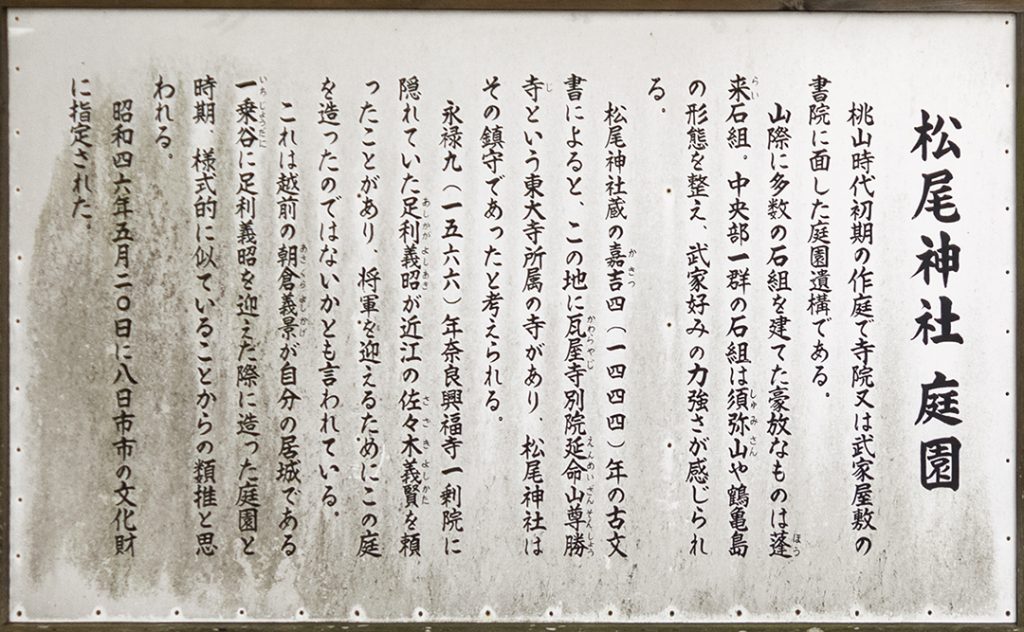 松尾神社 庭園
桃山時代初期の作庭で寺院又は武家屋敷の
書院に面した庭園遺構である。
山際に多数の石組を建てた豪放なものは蓬
来石組。中央部一群の石組は須弥山や鶴亀島
の形態を整え、武家好みの力強さが感じられ
る。
松尾神社蔵の嘉吉四(一四四四)年の古文
書によると、この地に瓦屋寺別院延命山尊勝
寺という東大寺所属の寺があり、松尾神社は
その鎮守であったと考えられる。
永禄九(一五六六)年奈良興福寺一剰院に
隠れていた足利義昭が近江の佐々木義賢を頼
ったことがあり、将軍を迎えるためにこの庭
を造ったのではないかとも言われている。
これは越前の朝倉義景が自分の居城である
一乗谷に足利義昭を迎えた際に造った庭園と
時期、様式的に似ていることからの類推と思
われる。
昭和四六年五月二〇日に八日市市の文化財
に指定された。